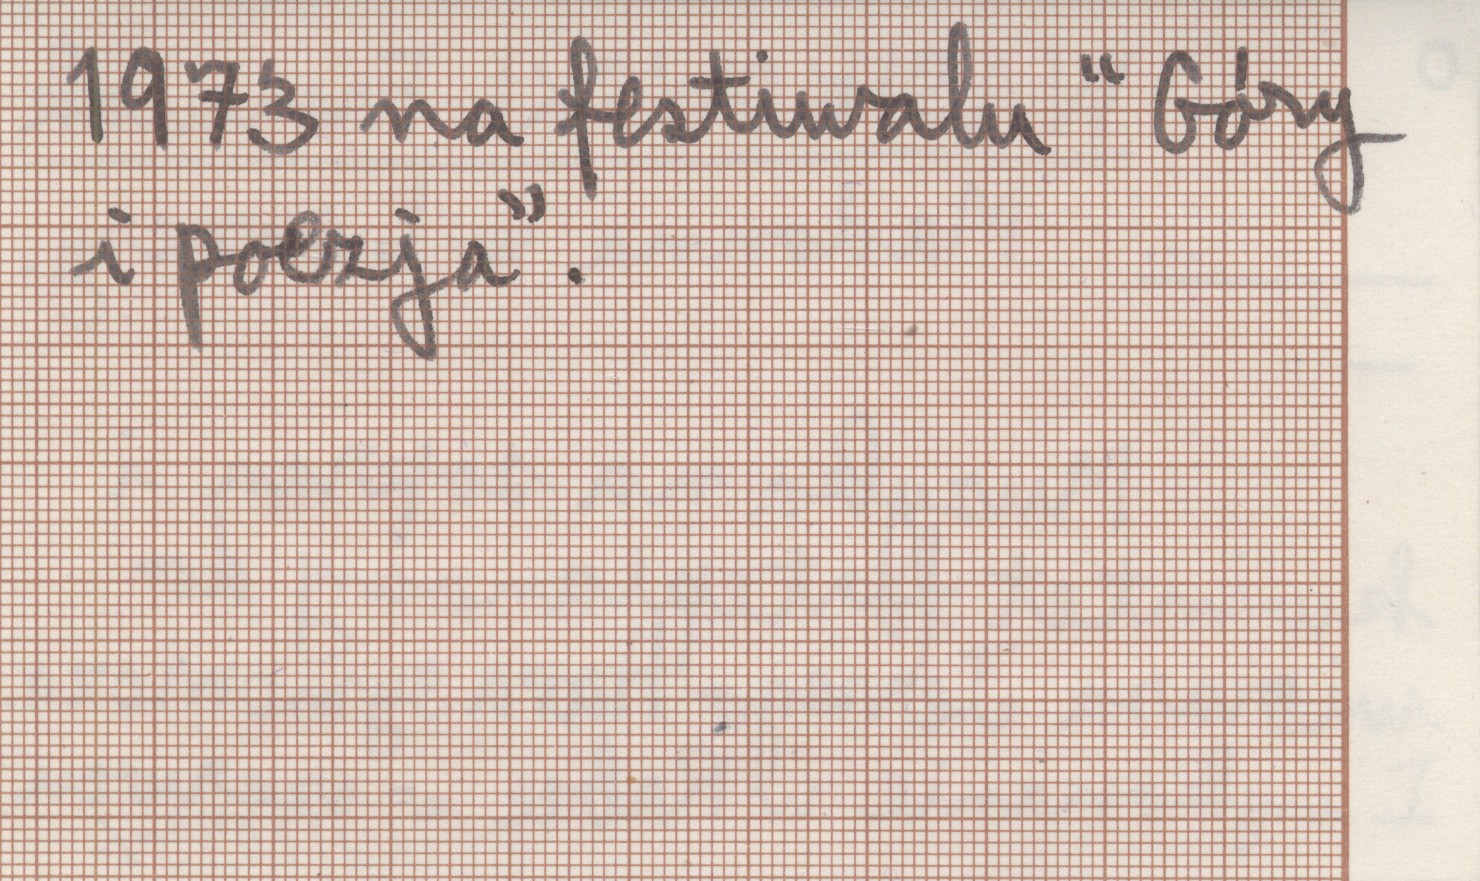 1973 na festiwalu "Góry
i poezja".